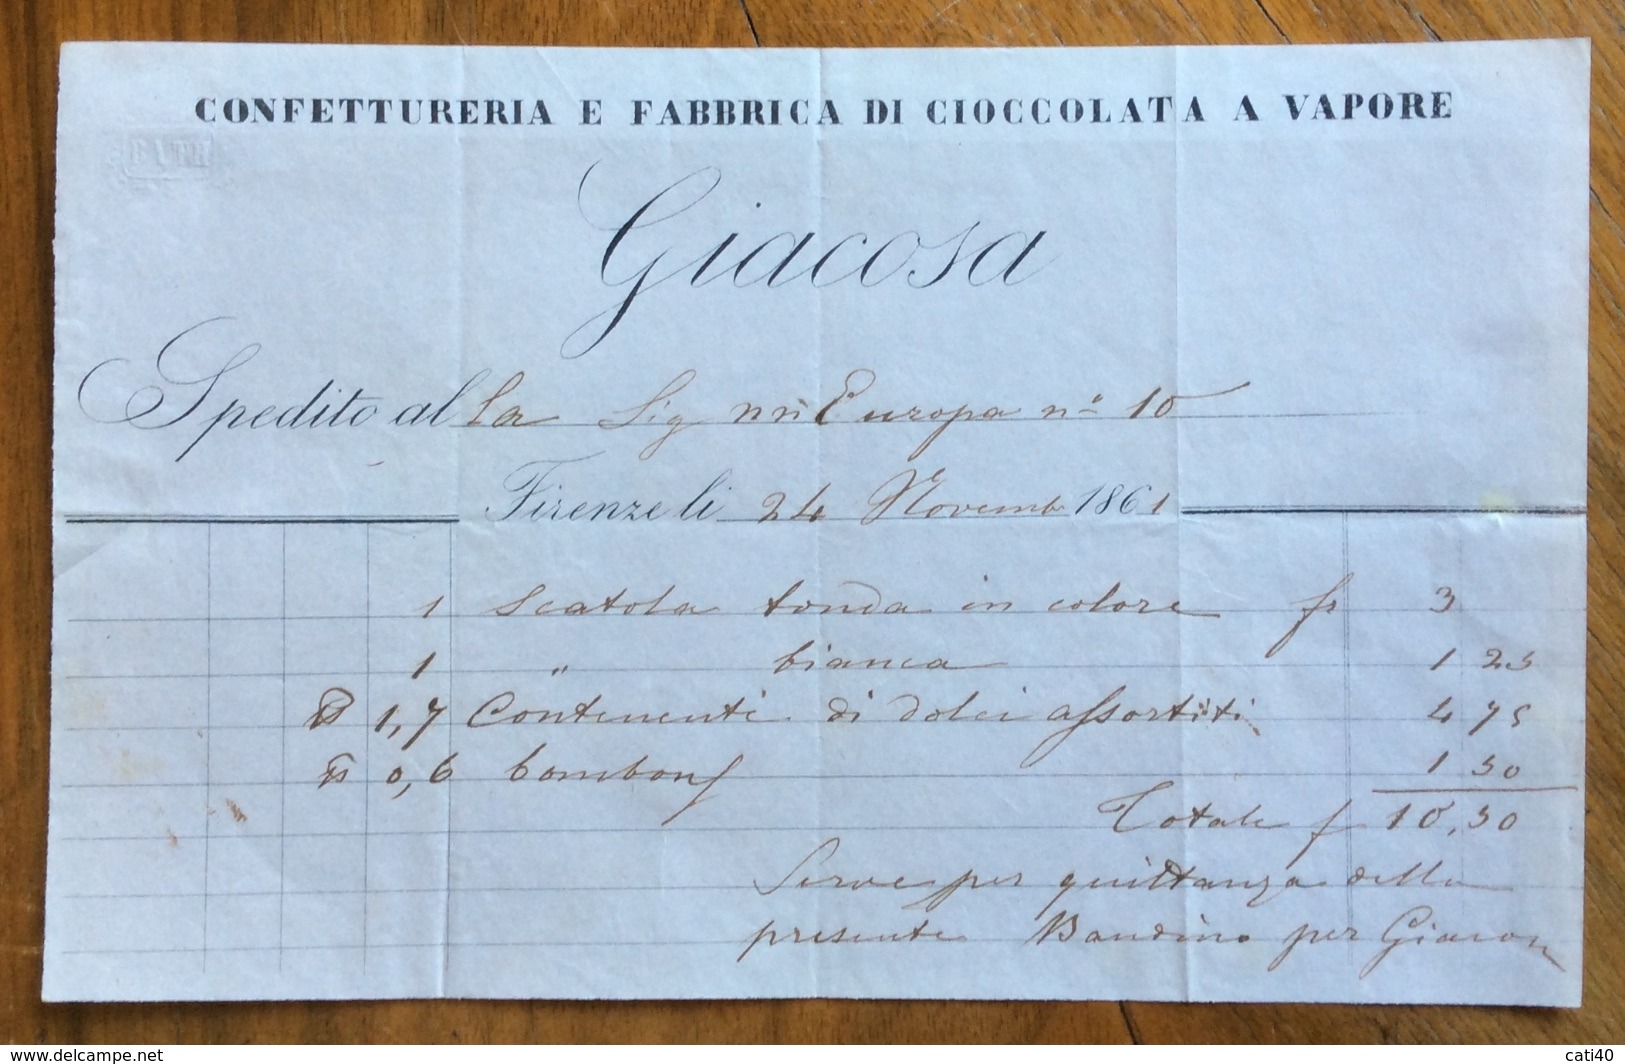 CONFETTURERIA E FABBRICA DI CIOCCOLATA A VAPORE
BATH
Giacosa
Spedito al la Sig Europa nº 10
Firenze li 24 Novemb 1861
1 Scatola tonda in colore fr 3
1 " bianca 1 25
1,7 Contenenti di dolci assortiti 4 75
0,6 bombons 1 30
Totale f 10,30
Serve per quittanza della
presente Bandino per Giacosa
www.delcampe.net
cati40